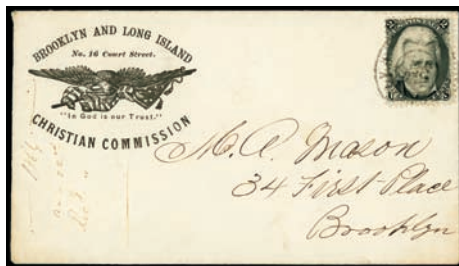 BROOKLYN AND LONG ISLAND
No. 16 Court Street.
"In God is our Trust."
CHRISTIAN COMMISSION
M. A. Mason
34 First Place
Brooklyn